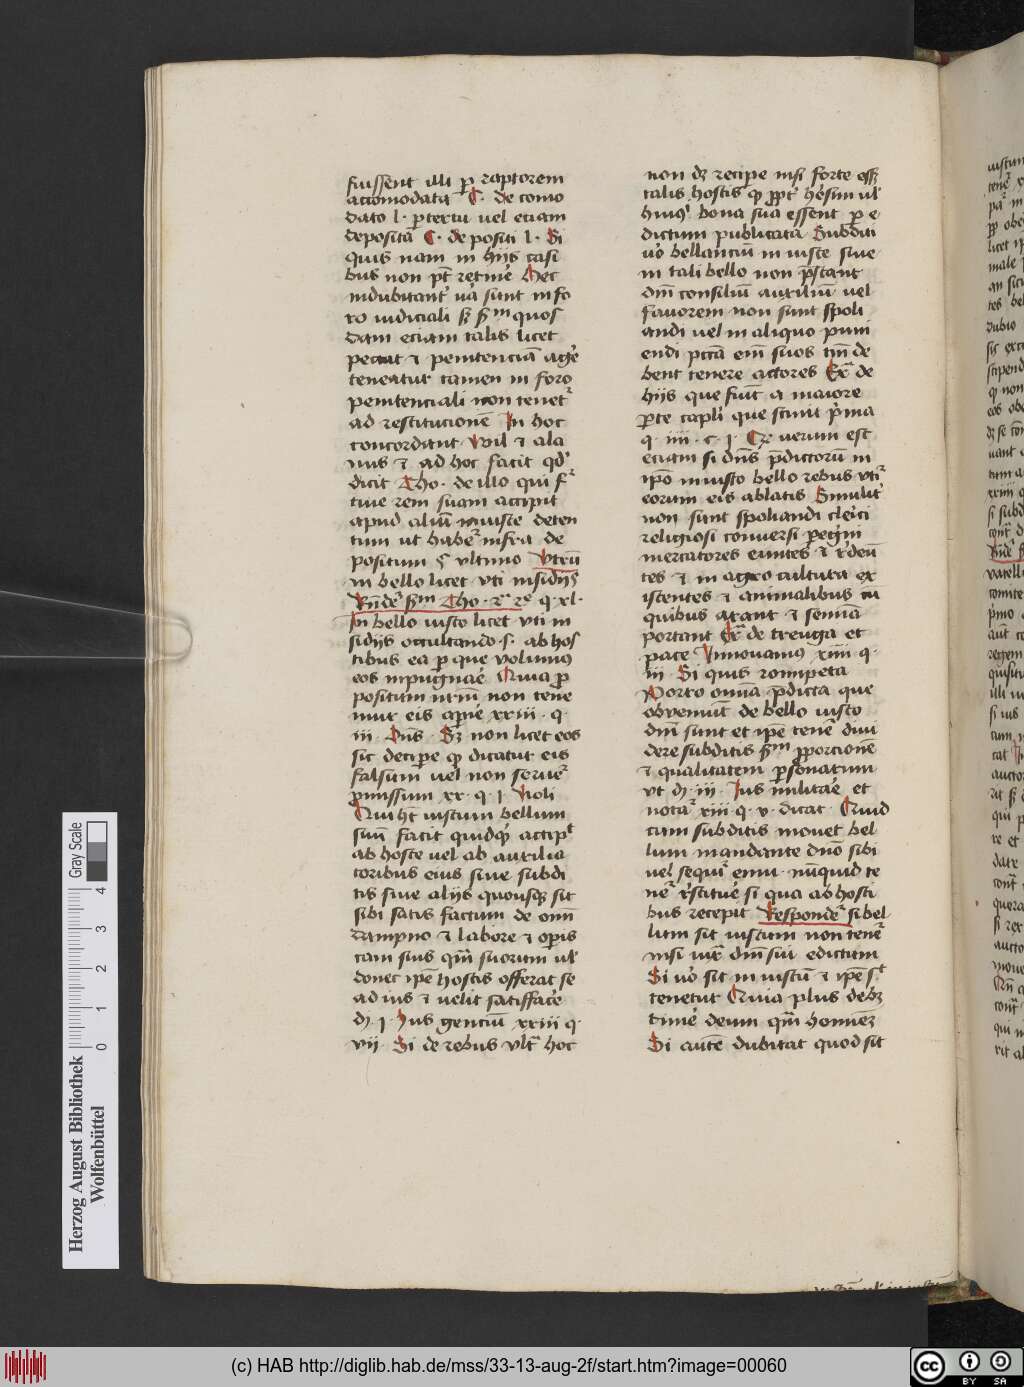 fuissent illi ꝑ raptorem
accomodata C · de como
dato l · ꝑ certu uel etiam
deposita C · de positi l · Si
quis nam in hijs casi
bus non pt̄ retine Hec
indubitant̉ ūa sunt in fo
ro iudiciali sꝫ ẜm quos
dam etiam talis licet
peccat ⁊ penitenciā age
teneatur tamen in foro
penitenciali non tenet̉
ad restitucionē In hoc
concordant Wil ⁊ ala
nus ⁊ ad hoc facit qd̓
dicit Tho · de illo qui f̉
tiue rem suam accipit
apud aliū iniuste deten
tum ut habet̉ infra de
positum § vltimo Vtrū
in bello licet vti insidijs
Rn̄det̉ ẜm Tho · 2ᵃ 2ᵉ q · xl ·
In bello iusto licet vti in
sidijs occultando · s · ab hos
tibus ea ꝑ que volumus
eos inpugnare Quia ꝓ
positum nr̄m non tene
mur eis aꝑire xxiii · q
iii · Dn̄s · Sꝫ non licet eos
sic deciꝑe ꝙ dicatur eis
falsum uel non seruet̉
ꝓmissum xx · q · i · Noli
Qui ht̄ iustum bellum
suū facit quidqd̓ accipit
ab hoste uel ab auxilia
toribus eius siue subdi
tis siue alijs quousqꝫ sit
sibi satis factum de om̄i
dampno ⁊ labore ⁊ oꝑis
tam suis qm̄ suorum ul̓
donec ip̄e hostis offerat se
ad ius ⁊ uelit satisfacere
di · i · Ius genciū xxiii q ·
vii · Si de rebus vlt̓ hoc
non dꝫ recipe nisi forte essꝫ
talis hostis ꝙ ꝓpt̓ hēsim ul̓
huiꝰ bona sua essent ꝑ e
dictum publicata Subditi
uō bellantiū in iuste siue
in tali bello non p̄stant
dn̄i consiliū auxiliū uel
fauorem non sunt spoli
andi uel in aliquo puni
endi pctā eni suos tm̄ de
bent tenere actores Ex̄ de
hijs que fiūt a maiore
ꝑte capli que sciuit p̓ma
q · iiii · c · i · Cꝫ verum est
etiam si dn̄s p̄dictorū in
ip̄o iniusto bello rebus vtit̉
eorum eis ablatis Similit̉
non sunt spoliandi clerici
religiosi conuersi peg̓ni
mercatores euntes ⁊ r̓deū
tes ⁊ in agro cultura ex
istentes ⁊ animalibus cū
quibus arant ⁊ seminā
portant Ex̄ de treuga et
pace Innouamꝰ xxiiii q ·
iii · Si quis romipeta
Porro omia p̄dicta que
obueniūt de bello iusto
dn̄i sunt et ip̄e tenet̓ diui
dere subditis ẜm ꝓporcionē
⁊ qualitatem ꝑsonarum
vt di · iii · Ius militare et
notat̉ xiii q · v · dicat Quid
cum subditis mouet bel
lum mandante dn̄o sibi
uel sequit̉ eum · nūquid te
net̉ r̓stituere si qua ab hosti
bus recepit Respondet̉ si bel
lum sit iustum non tenet̉
nisi iux̄ dn̄i sui edictum
Si uō sit in iustū ⁊ ip̄e sit
tenetur Quia plus debꝫ
timere deum qm̄ homines
Si autē dubitat quod sit
Herzog August Bibliothek
Wolfenbüttel
0 1 2 3 4 Gray Scale
(c) HAB http://diglib.hab.de/mss/33-13-aug-2f/start.htm?image=00060
cc BY SA